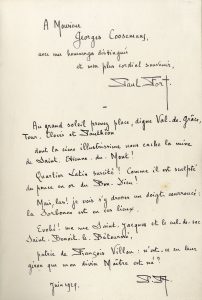 A Monsieur
Georges Coosemans,
avec mes hommages distingués
et mon plus cordial souvenir,
Paul Fort.
Au grand soleil francs place, digne Val-de-Grâce,
Tour Clovis et Panthéon
dont la cime illustrissime nous cache la mine
de Saint-Etienne-du-Mont!
Quartier Latin suscité! Comme il est sculpté
du pouce en or du Bon-Dieu!
Mais, las! je vois s'y dresser un doigt, courroucé:
la Sorbonne est en ces lieux.
Evohé! ma rue Saint-Jacques et le cul-de-sac
Saint-Benoît-le-Bétourné,
patrie de François Villon: n'est-ce en leur
giron que mon divin Maître est né?
P. F.
Juin 1929.